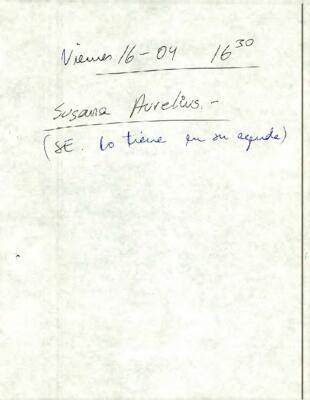 Viernes 16-04 16³⁰
Susana Aurelius.-
(SE. lo tiene en su agenda)